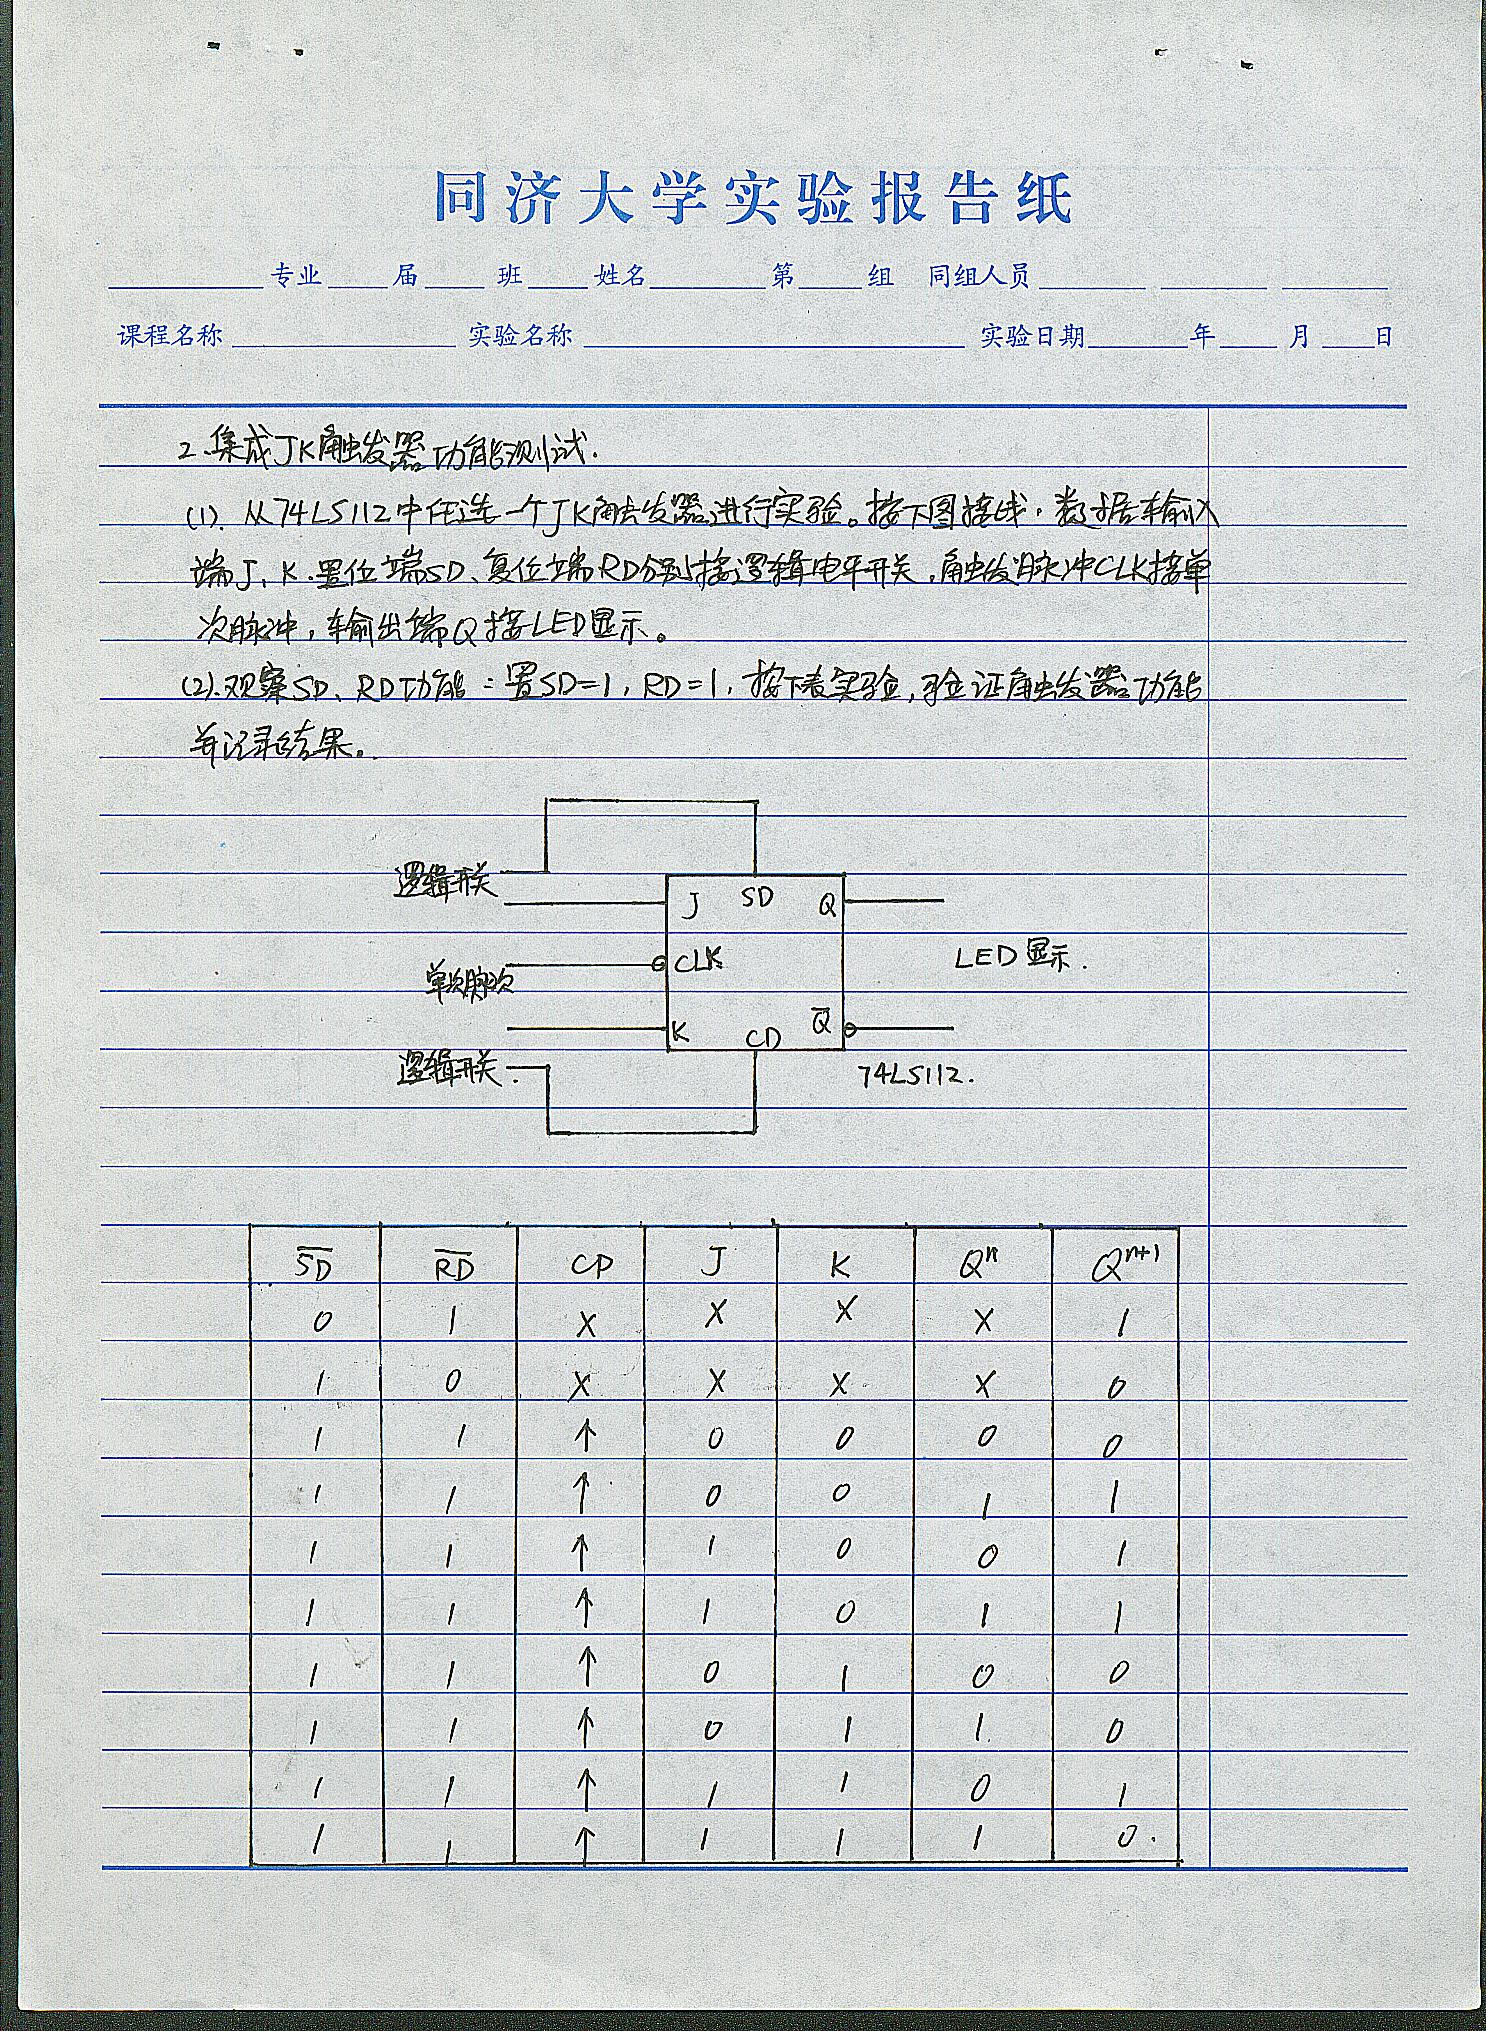 同济大学实验报告纸
专业 届 班 姓名 第 组 同组人员
课程名称 实验名称 实验日期 年 月 日
2.集成JK触发器功能测试.
(1). 从74LS112中任选一个JK触发器进行实验。按下图接线,数据输入
端J、K.置位端SD、复位端RD分别接逻辑电平开关,触发脉冲CLK接单
次脉冲,输出端Q接LED显示。
(2).观察SD、RD功能:置SD=1,RD=1,按下表实验,验证触发器功能
并记录结果。
逻辑开关
J SD Q
CLK
LED显示.
单次脉次
K CD Q̅
逻辑开关.
74LS112.
S̅D̅ R̅D̅ CP J K Qⁿ Qⁿ⁺¹
0 1 X X X X 1
1 0 X X X X 0
1 1 ↑ 0 0 0 0
1 1 ↑ 0 0 1 1
1 1 ↑ 1 0 0 1
1 1 ↑ 1 0 1 1
1 1 ↑ 0 1 0 0
1 1 ↑ 0 1 1 0
1 1 ↑ 1 1 0 1
1 1 ↑ 1 1 1 0.